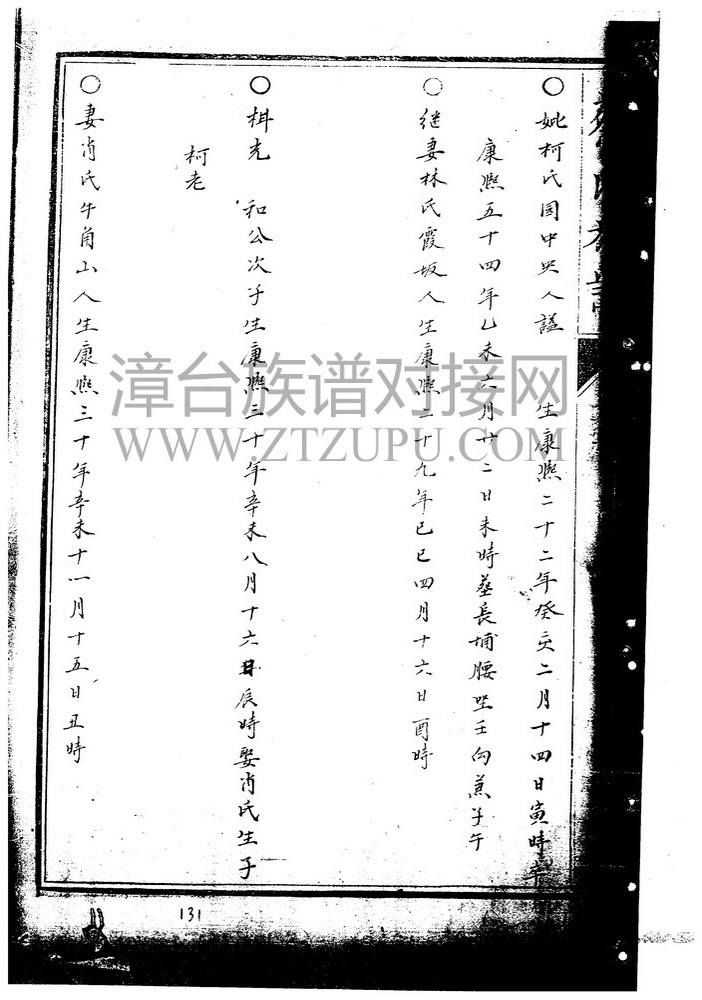 妣柯氏园中央人謚 生康熙二十二年癸亥二月十四日寅時卒
康熙五十四年乙未六月廿二日未時葬長埔腰坐壬向兼子午
继妻林氏霞坂人生康熙二十九年巳巳四月十六日酉時
楫光 和公次子生康熙三十年辛未八月十六日辰時娶肖氏生子
柯老
妻肖氏牛角山人生康熙三十年辛未十一月十五日丑時
漳台族谱对接网
WWW.ZTZUPU.COM
131